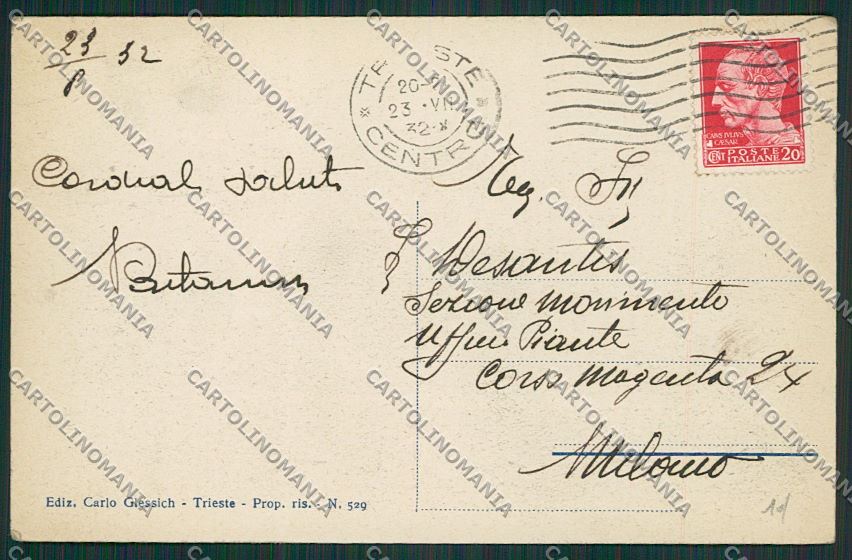 23/8 32
TRIESTE CENTRO
20-
23.VII
32-X
CAIVS IVLIVS
CAESAR
CENT POSTE ITALIANE 20
Cordiali saluti
Desantis
Sezione Movimento
Ufficio Piante
Corso Magenta 24
Milano
Ediz. Carlo Giessich - Trieste - Prop. ris. - N. 529
CARTOLINOMANIA